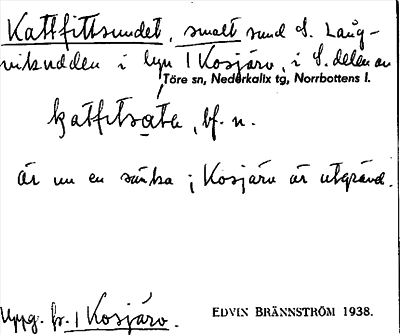 Kattfittsundet, smalt sund S. Lång-
viksudden i byn 1 Kosjärv, i S. delen av
Töre sn, Nederkalix tg, Norrbottens l.
bf. n.
är nu en sänka i Kosjärv är utgrävd.
Uppg. fr. 1 Kosjärv.
EDVIN BRÄNNSTRÖM 1938.